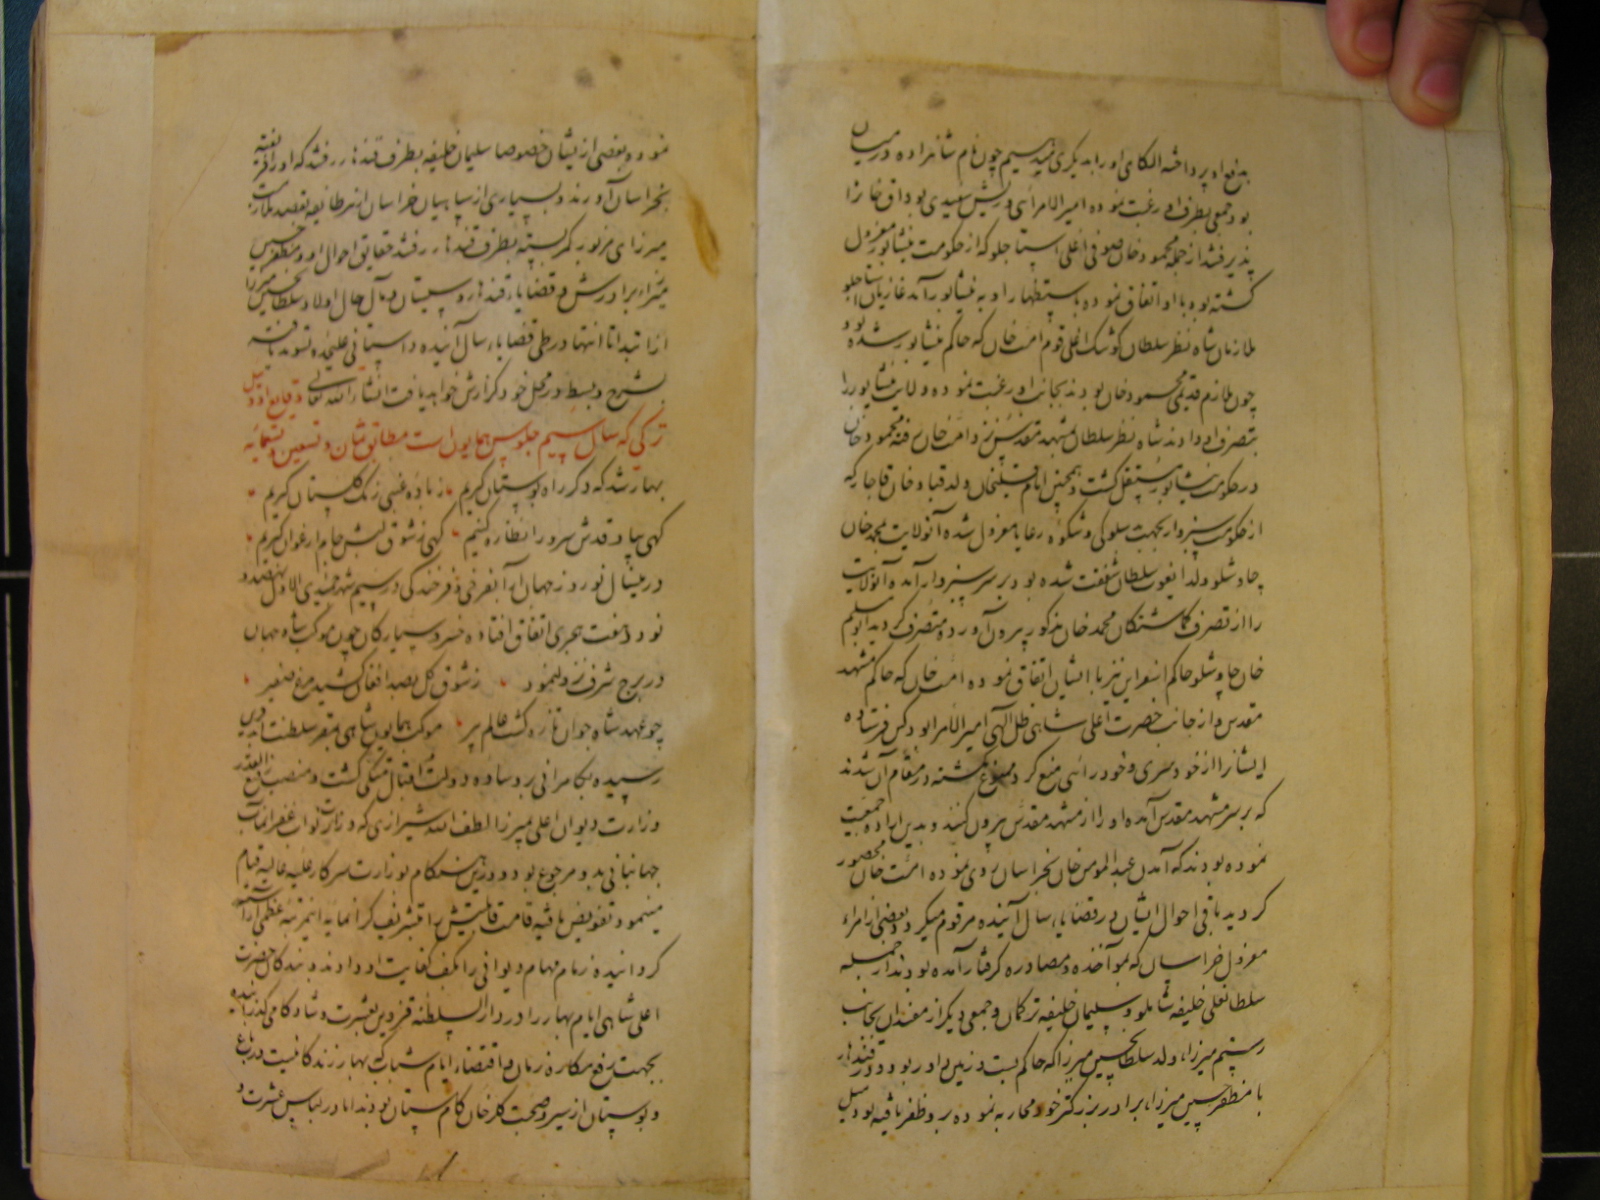 بدفع او پرداخته الکای او را بدیگری میدهیم چون نام شاهزاده در میان
بود جمعی بطرف او رغبت نموده امیر الامرائی و ریش سفیدی بوداق خانرا
پذیرفتند از جمله محمود خان صوفی اغلی استاجلو که از حکومت نیشابور معزول
گشته بود با او اتفاق نموده باستظهار او به نیشابور آمد غازیان استاجلو
ملازمان شاه نظر سلطان کوشک اغلی قوم امت خان که حاکم نیشابور شده بود
چون ملازم قدیمی محمود خان بودند بجانب او رغبت نموده ولایت نیشابور را
بتصرف او دادند شاه نظر سلطان بمشهد مقدس نزد امت خان رفته محمود خان
در حکومت نیشابور مستقل گشت و همچنین ایام قلیخان ولد قباد خان قاجار که
از حکومت سبزوار بجهت سلوکی و شکوه رعایا معزول شده آنولایت بمحمد خان
چاوشلو ولد ایغوت سلطان شفقت شده بود بر سر سبزوار آمده آنولایت
را از تصرف گماشتگان محمد خان مذکور بیرون آورده متصرف گردید ابو مسلم
خان چاوشلو حاکم اسفراین نیز با ایشان اتفاق نموده امت خان که حاکم مشهد
مقدس و از جانب حضرت اعلی شاهی ظل الهی امیر الامرا بود کس فرستاده
ایشانرا از خودسری و خودرائی منع کرد ممنوع نگشته در مقام آن شدند
که بر سر مشهد مقدس آمده او را از مشهد مقدس بیرون کنند و بدین اراده جمعیت
نموده بودند که آمدن عبد المومن خان بخراسان روی نموده امت خان محصور
گردید باقی احوال ایشان در قضایای سال آینده مرقوم میگردد و بعضی از امراء
معزول خراسان که بمواخذه و مصادره گرفتار آمده بودند از جمله
سلطانعلی خلیفه شاملو و سلیمان خلیفه ترکمان و جمعی دیگر از مفسدان بجانب
رستم میرزا ولد سلطان حسین میرزا که حاکم بست و زمین داور بود و در قندهار
با مظفر حسین میرزا برادر بزرگتر خود محاربه نموده برو ظفر یافته بود میل
نموده بعضی از ایشان خصوصا سلیمان خلیفه بطرف قندهار رفتند که او را فریفته
بخراسان آورند و بسیاری از سپاهیان خراسان از هر طایفه بقصد ملازمت
میرزای مزبور کمر بسته بطرف قندهار رفتند حقایق احوال او و مظفر حسین
میرزا برادرش و قضایاء قندهار و سیستان و مآل حال اولاد سلطان حسین میرزا
از ابتدا تا انتها در طی قضایاء سال آینده داستانی علیحده تسوید یافته
بشرح و بسط در محل خود گزارش خواهد یافت انشاء الله تعالی وقایع اودئیل
ترکی که سال سیم جلوس همایون است مطابق ثمان و تسعین و تسعمائه
بهار شد که دگر راه بوستان گیریم ز باده عنبی رنگ گلستان گیریم
گهی بیاد قدش سرو را نظاره کنیم گهی ز شوق لبش جام ارغوان گیریم
درینسال نوروز جهان آرا بفرخی و فرخندگی در سیم شهر جمادی الاول نهصد و
نود و هفت هجری اتفاق افتاده خسرو سیارگان چون موکب شاه جهان
در برج شرف نزول نمود ز شوق گل بصد افغان کشید مرغ صفیر
چو عهد شاه جوان تازه گشت عالم پیر موکب همایون شاهی بمقر سلطنت ابدی
رسیده بکامرانی بر وساده دولت و اقبال متمکن گشت و منصب رفیع القدر
وزارت دیوان اعلی بمیرزا لطف الله شیرازی که وزارت نواب غفرانمآب
جهانبانی بدو مرجوع بود و درین هنگام بوزارت سرکار علیه عالیه قیام
مینمود تفویض یافته قامت قابلیتش را بتشریف گرانمایه اینمرتبه عظمی آراسته
گردانیده زمام مهام دیوانی را بکف کفایت او دادند و بندگان حضرت
اعلی شاهی ایام بهار را در دار السلطنه قزوین بعشرت و شادکامی گذرانیده
بجهت رفع مکاره زمان و اقتضاء ایام شباب که بهار زندگانیست در باغ
و بوستان از سیر و صحبت گلرخان کام ستان بودند اما در لباس عشرت و